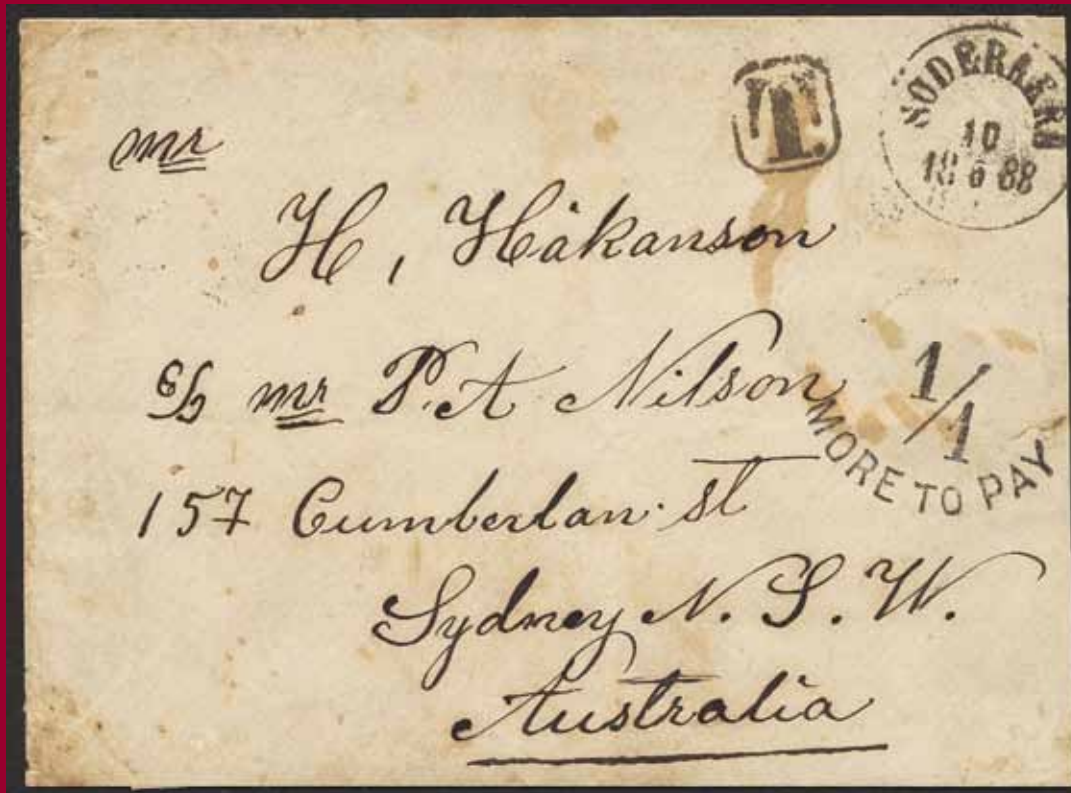 T.
10
18 6 88
mr
H, Håkanson
c/o mr P. A Nilson
1/1
MORE TO PAY
157 Cumberlan. st
Sydney N. S. W.
Australia